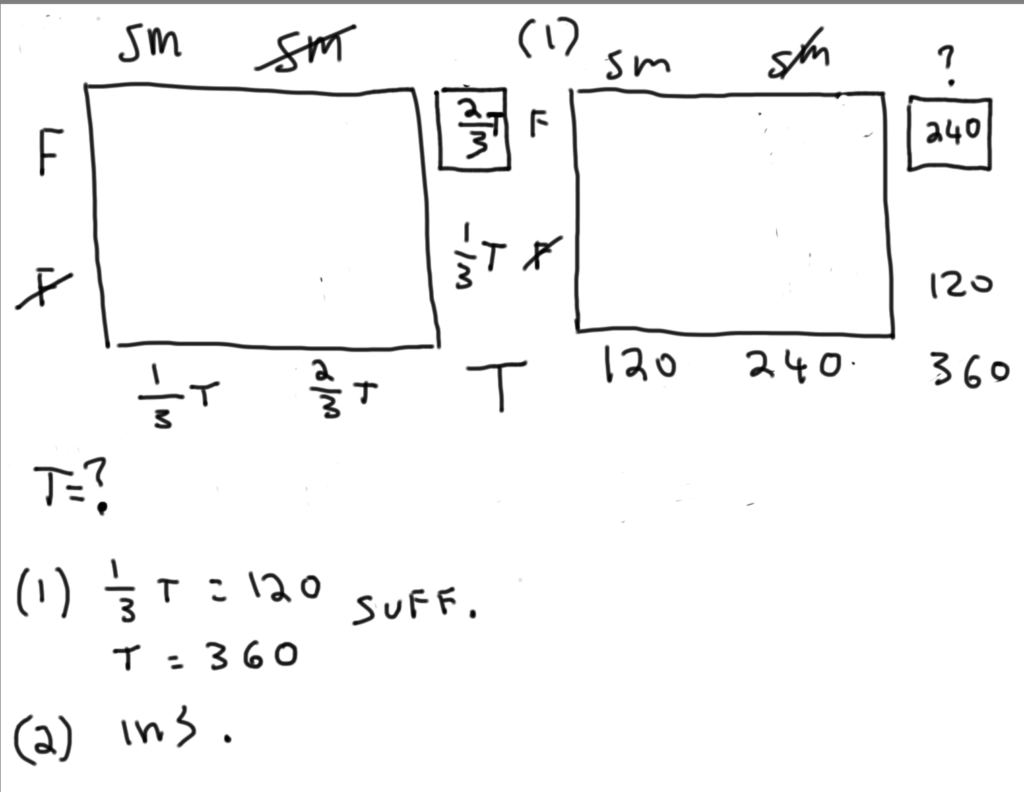 sm s̶m̶
F 2/3 T
F̶ 1/3 T
1/3 T 2/3 T T
(1)
sm s̶m̶ ?
F 240
F̶ 120
120 240 360
T=?
(1) 1/3 T = 120 SUFF.
T = 360
(2) INS.